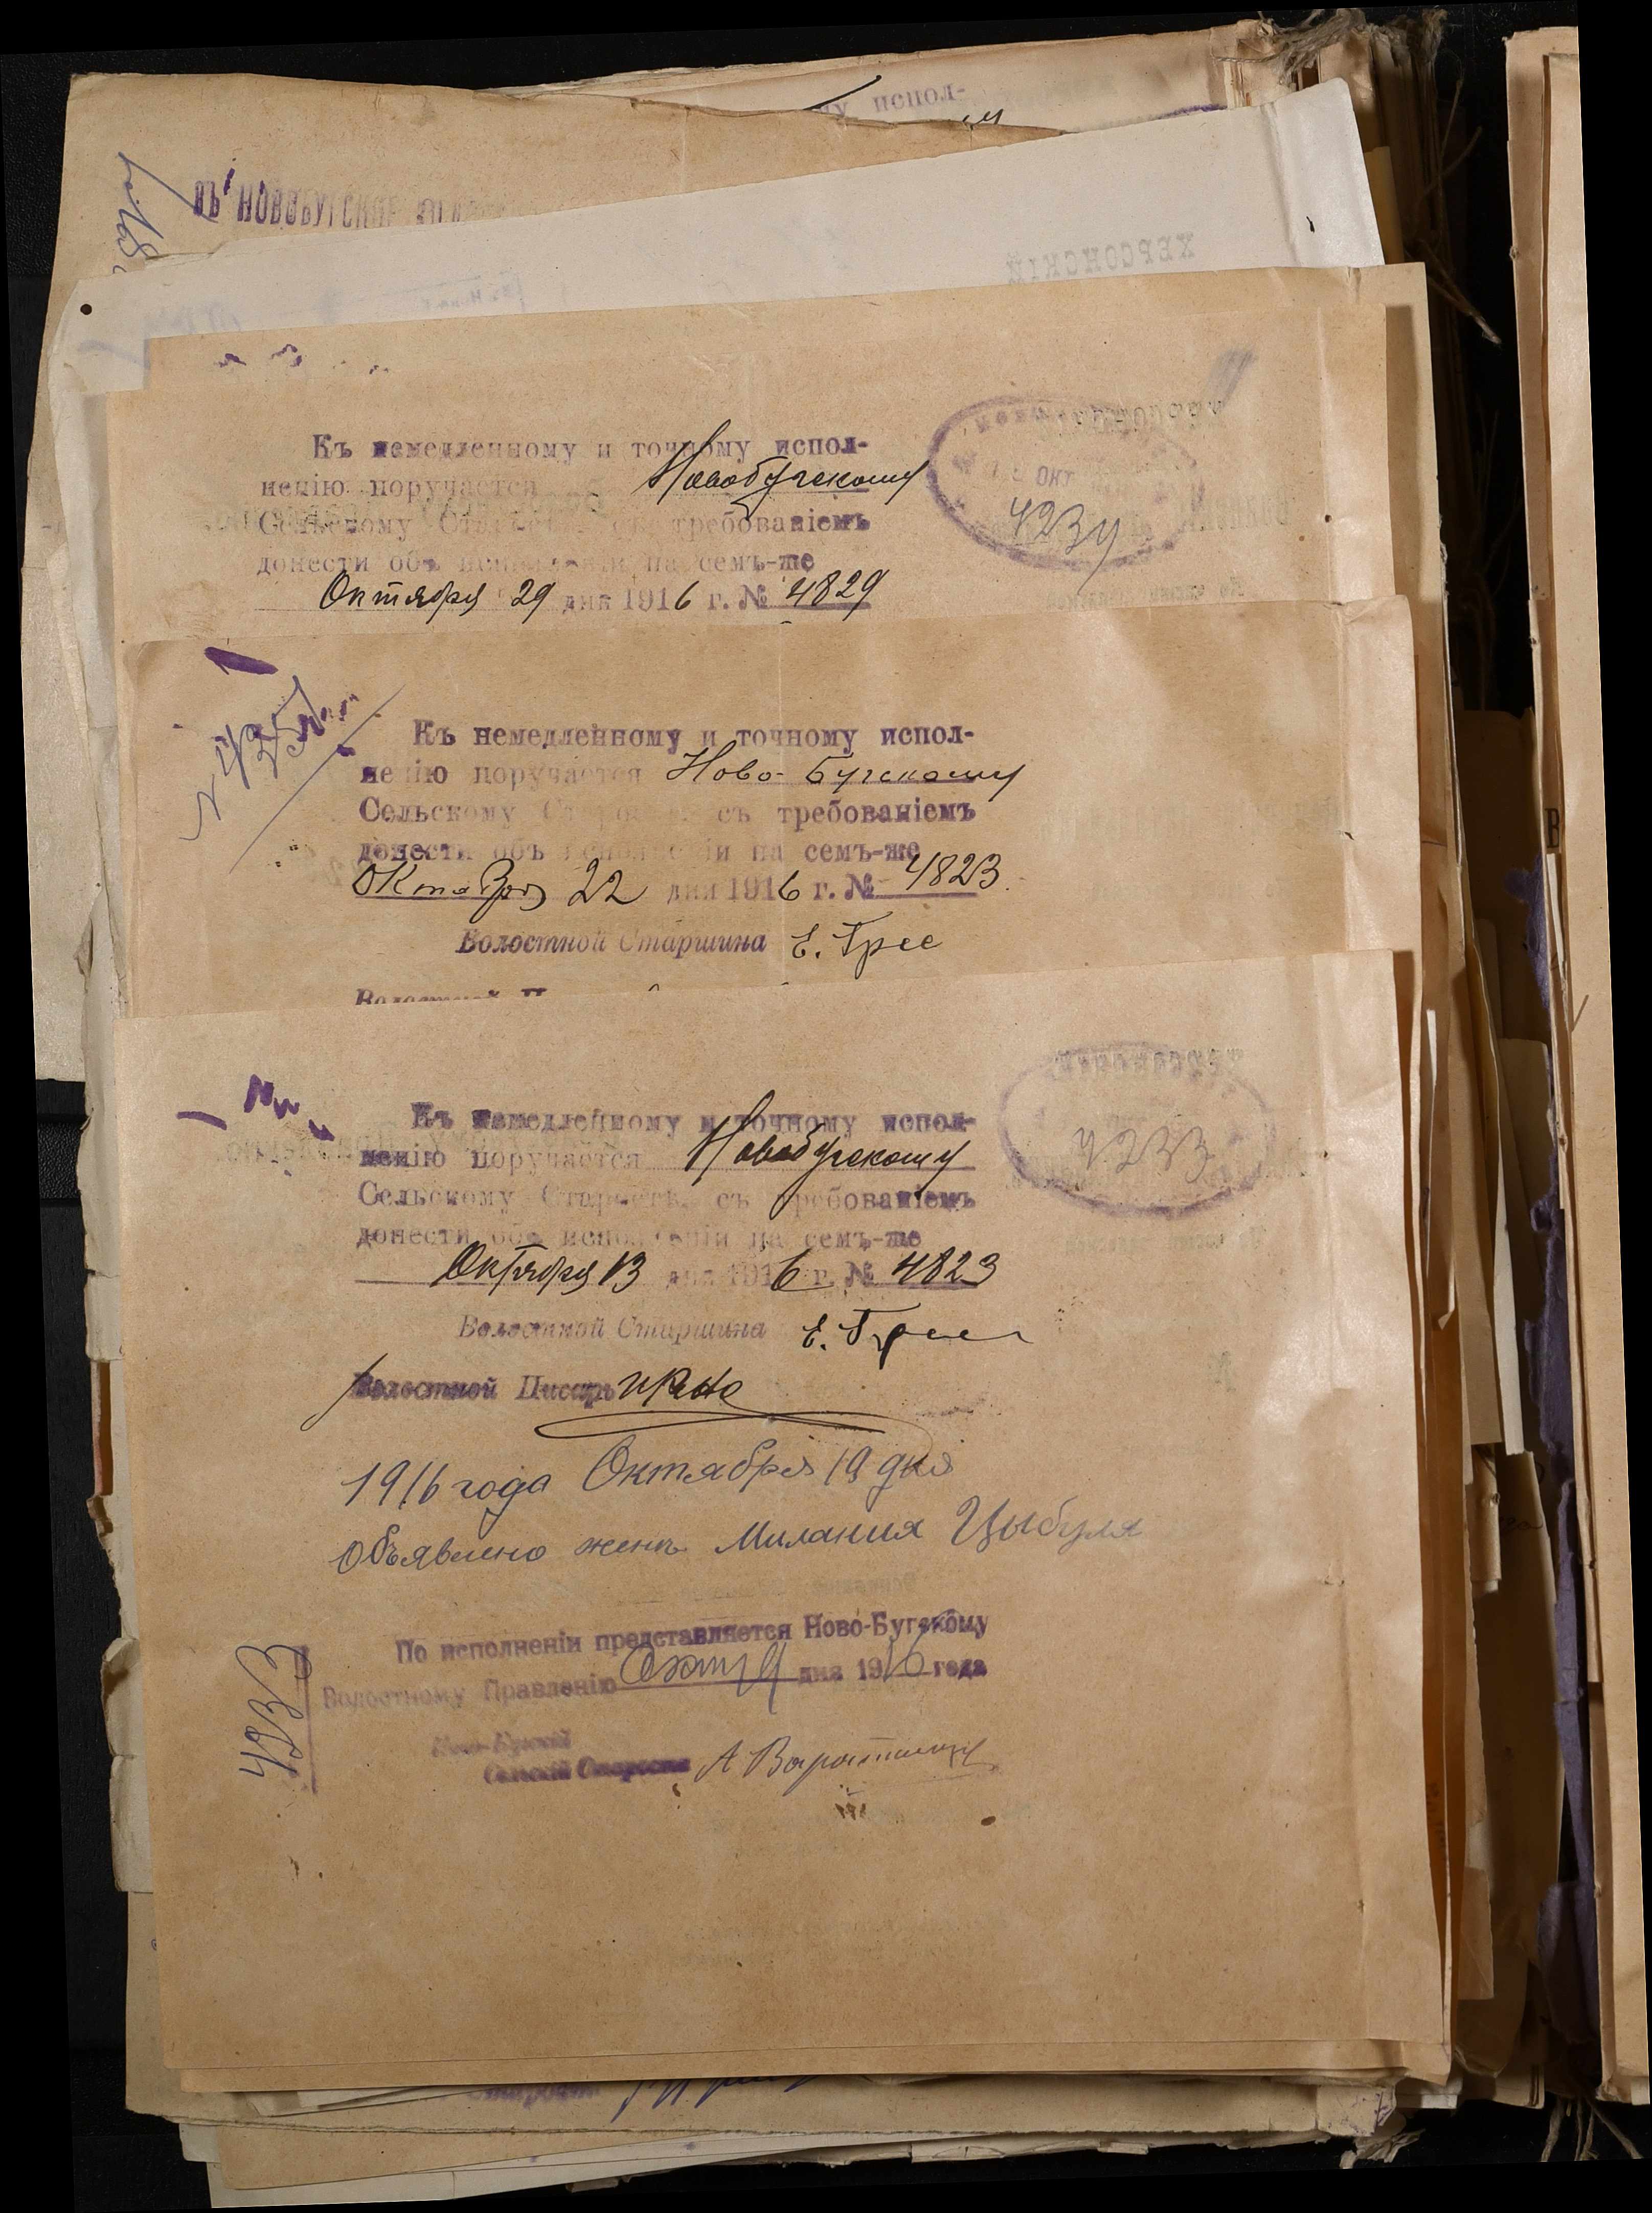 му испол-
ВЪ НОВОБУГСКОЕ
ХЕРСОНСКІЙ
Къ немедленному и точному испол-
ненію поручается Новобугскому
Сельскому Старостѣ съ требованіемъ
донести объ исполненіи на семъ-же
Октября 29 дня 1916 г. № 4829
ОКТ
4234
№ 4251
Къ немедленному и точному испол-
ненію поручается Ново-Бугскому
Сельскому Старостѣ съ требованіемъ
донести объ исполненіи на семъ-же
Октября 22 дня 1916 г. № 4823
Волостной Старшина Е. Грес
Къ немедленному и точному испол-
ненію поручается Новобугскому
Сельскому Старостѣ съ требованіемъ
донести объ исполненіи на семъ-же
Октября 13 дня 1916 г. № 4823
4233
Волостной Старшина Е.
Волостной Писарь
1916 года Октября 19 дня
Объявлено женѣ Милания Цыбуля
По исполненіи представляется Ново-Бугскому
Волостному Правленію Окт 19 дня 1916 года
4233
Ново-Бугскій
Сельскій Староста А